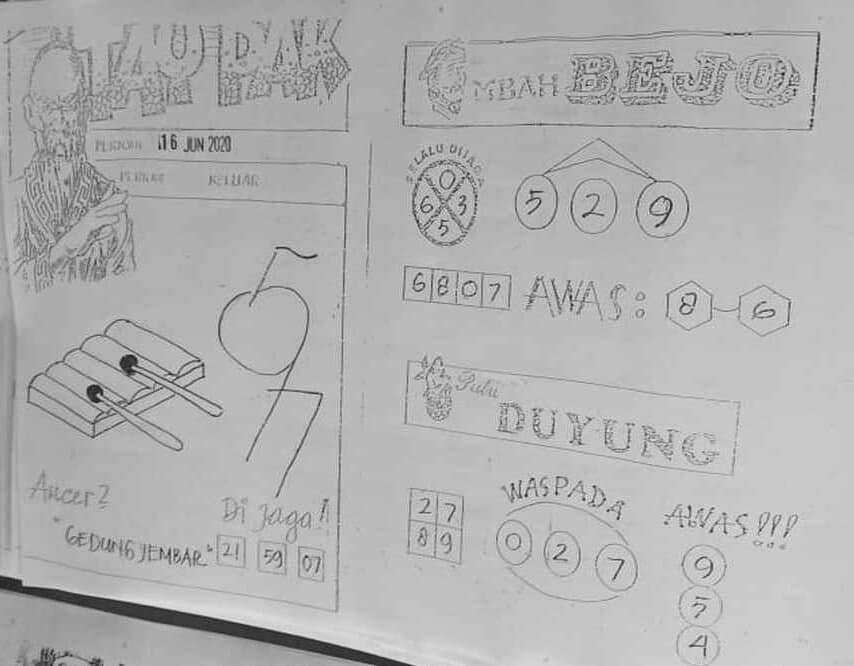 TAU PAK
PERIODE 16 JUN 2020
PERIODE KELUAR
Ancer2
Di jaga!!
"GEDUNG JEMBAR" 21 59 07
MBAH BEJO
SELALU DIJAGA
0
6 3
5
5 2 9
6 8 0 7 AWAS: 8-6
Putri
DUYUNG
2 7
8 9
WASPADA
0 2 7
AWAS!!!
9
5
4